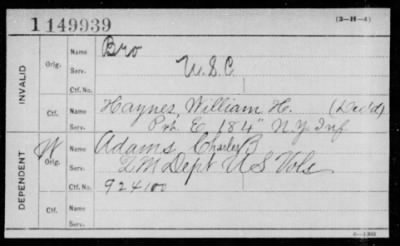 1149939
(3-H-4)
INVALID
Orig.
Name Bro
Serv. U.S.C.
Ctf. No.
Ctf.
Name Haynes, William H. (Dec'd)
Serv. Pvt. E, 184" N.Y. Inf
DEPENDENT
W
Orig.
Name Adams, Charles B
Serv. Q M Dept U S Vols
Ctf. No. 924100
Ctf.
Name
Serv.